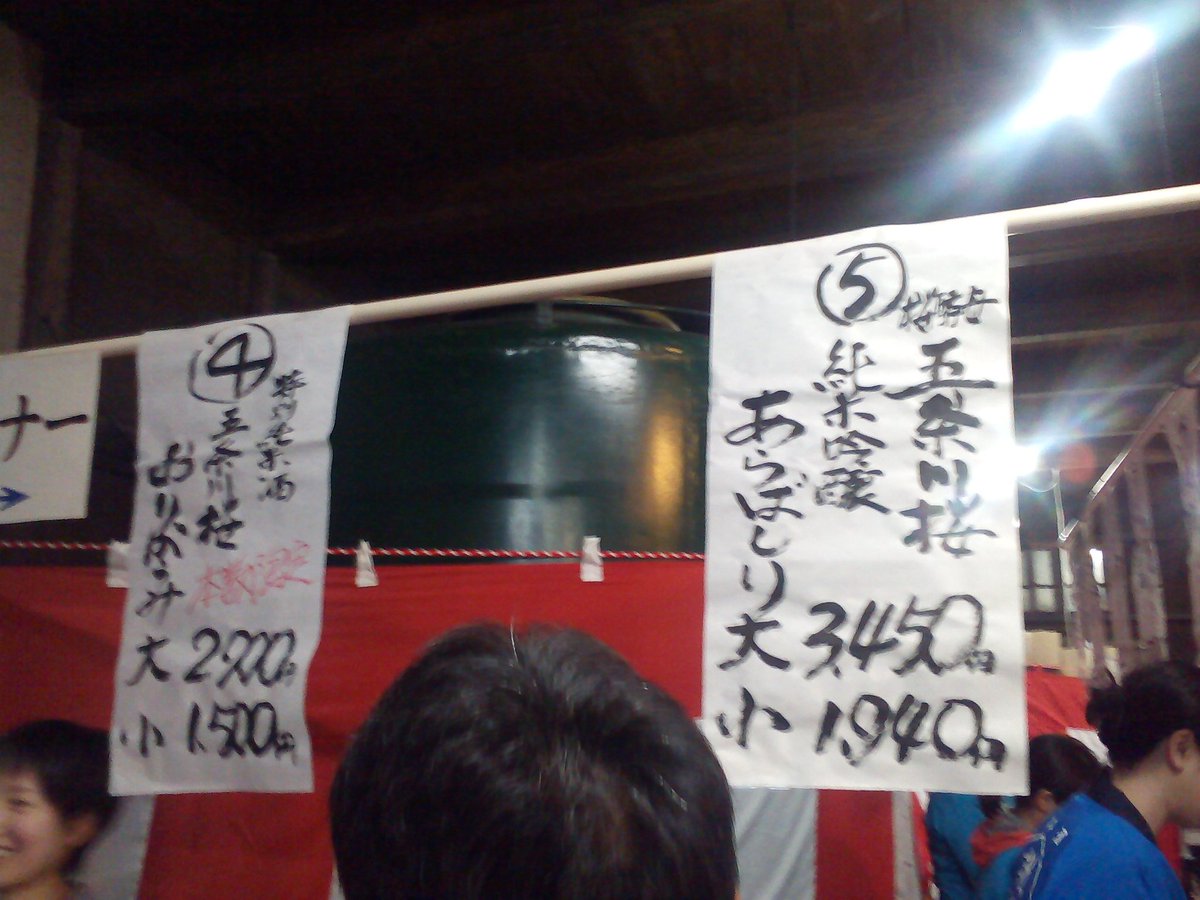 ナー
④
特別純米酒
五条川桜
本数限定
大 2,900円
小 1,500円
⑤
五条川桜
純米吟醸
あらばしり
大 3,450円
小 1,940円